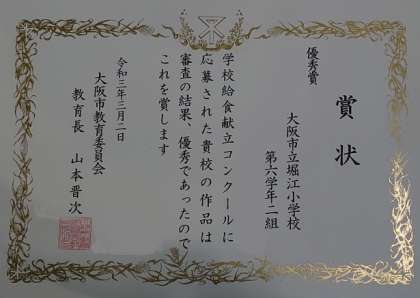 賞状
優秀賞
大阪市立堀江小学校
第六学年二組
学校給食献立コンクールに
応募された貴校の作品は
審査の結果、優秀であったので
これを賞します
令和三年三月二日
大阪市教育委員会
教育長 山本晋次